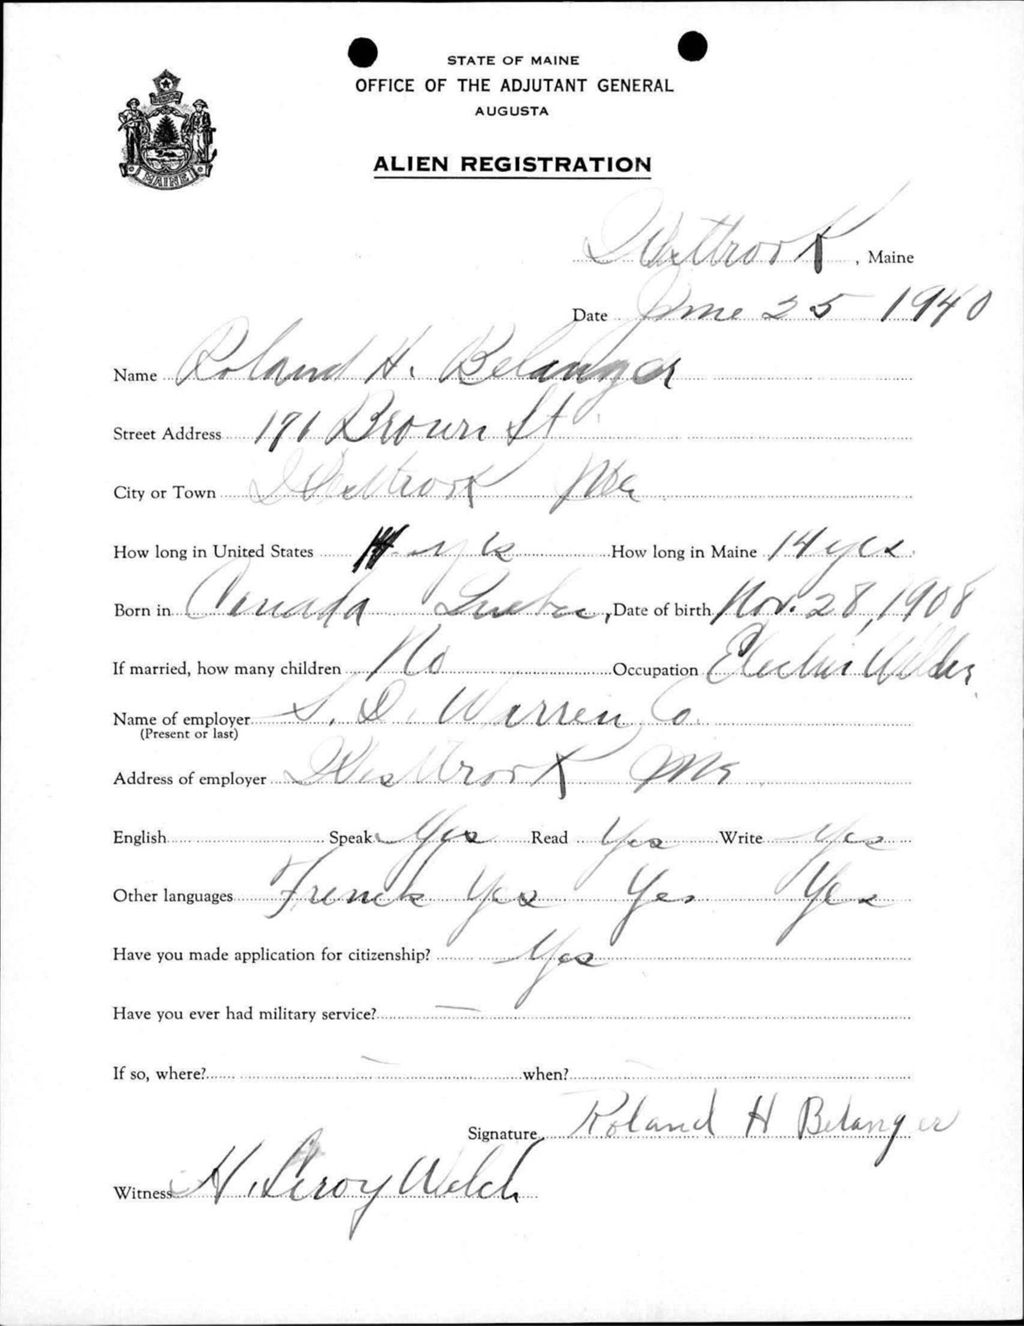 STATE OF MAINE
OFFICE OF THE ADJUTANT GENERAL
AUGUSTA
MAINE
ALIEN REGISTRATION
Westbrook, Maine
Date June 25 1940
Name Roland H. Belanger
Street Address 171 Brown St
City or Town Westbrook Me
How long in United States 14 yrs How long in Maine 14 yrs
Born in Canada Quebec, Date of birth Nov. 28, 1908
If married, how many children No Occupation Electric Welder
Name of employer S. D. Warren Co.
(Present or last)
Address of employer Westbrook Me
English Speak Yes Read Yes Write Yes
Other languages French Yes Yes Yes
Have you made application for citizenship? Yes
Have you ever had military service? —
If so, where? — when?
Signature Roland H Belanger
Witness H. Leroy Welch